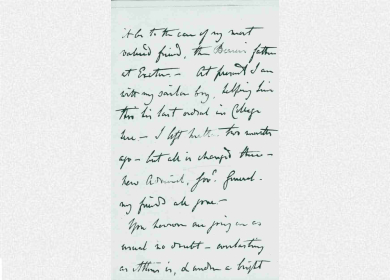 to the care of my most
valued friend, the Baring father
at Exeter. – At present I am
with my sailor boy, helping him
thro his last ordeal in College
here – I left two months
ago – but all is changed there –
new Admiral, Govr. General.
my friends all gone –
You however are going on as
usual no doubt – everlasting
as Athens is, & under a bright